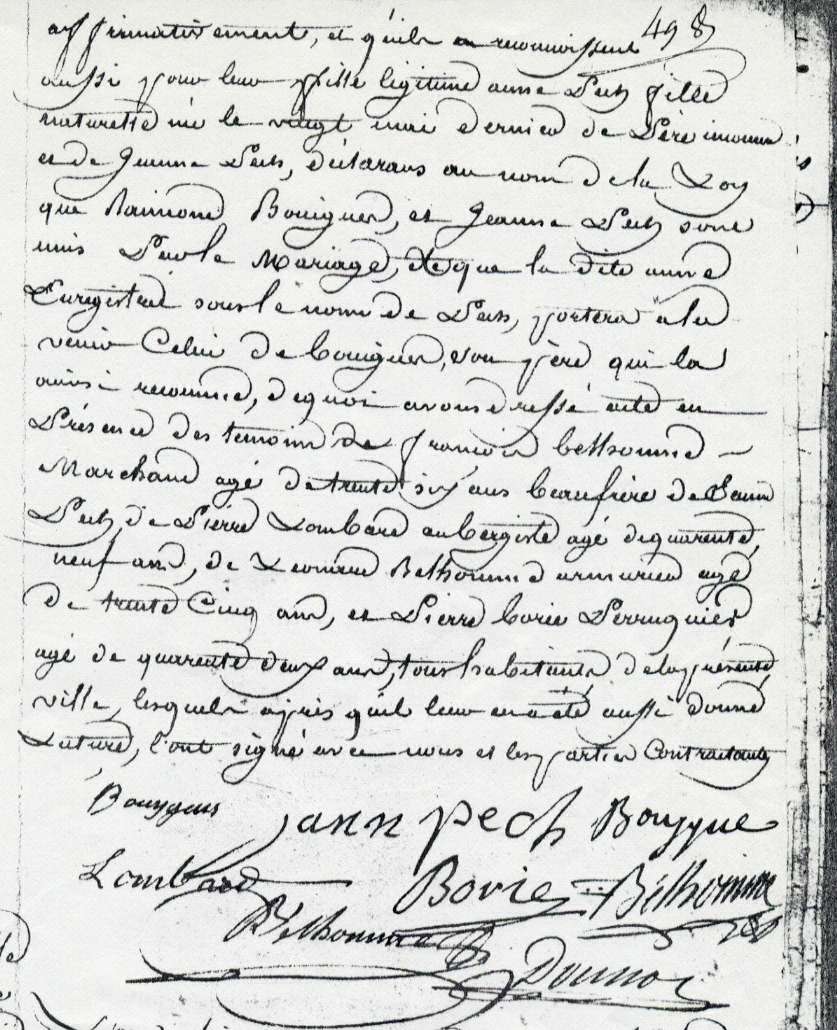 498
affirmativement, et qu'ils reconnoissent
aussi pour leur fille légitime anne Pech fille
naturelle née le vingt mai dernier de Père inconnu
et de Jeanne Pech, déclarons au nom de la Loy
que Raimond Bouigues, et Jeanne Pech sont
unis Par le Mariage, et que la dite anne
Enregistrée sous le nom de Pech, portera a la
venir Celui de bouigues, son père qui la
ainsi reconnue, de quoi avons dressé acte en
Présence des temoins de francois belhomme
Marchand agé de trente six ans beaufrère de Jeanne
Pech, de Pierre Lombard aubergiste agé de quarente
neuf ans, de Leonard Belhomme armurier agé
de trente Cinq ans, et Pierre borie Perruquier
agé de quarente deux ans, tous habitants de la présente
ville, lesquels après qu'il leur en a été aussi donné
Lecture, l'ont signé avec nous et les parties Contractantes
Bouygues jann pech Bouygue
Lombard Borie Belhomme
Belhomme